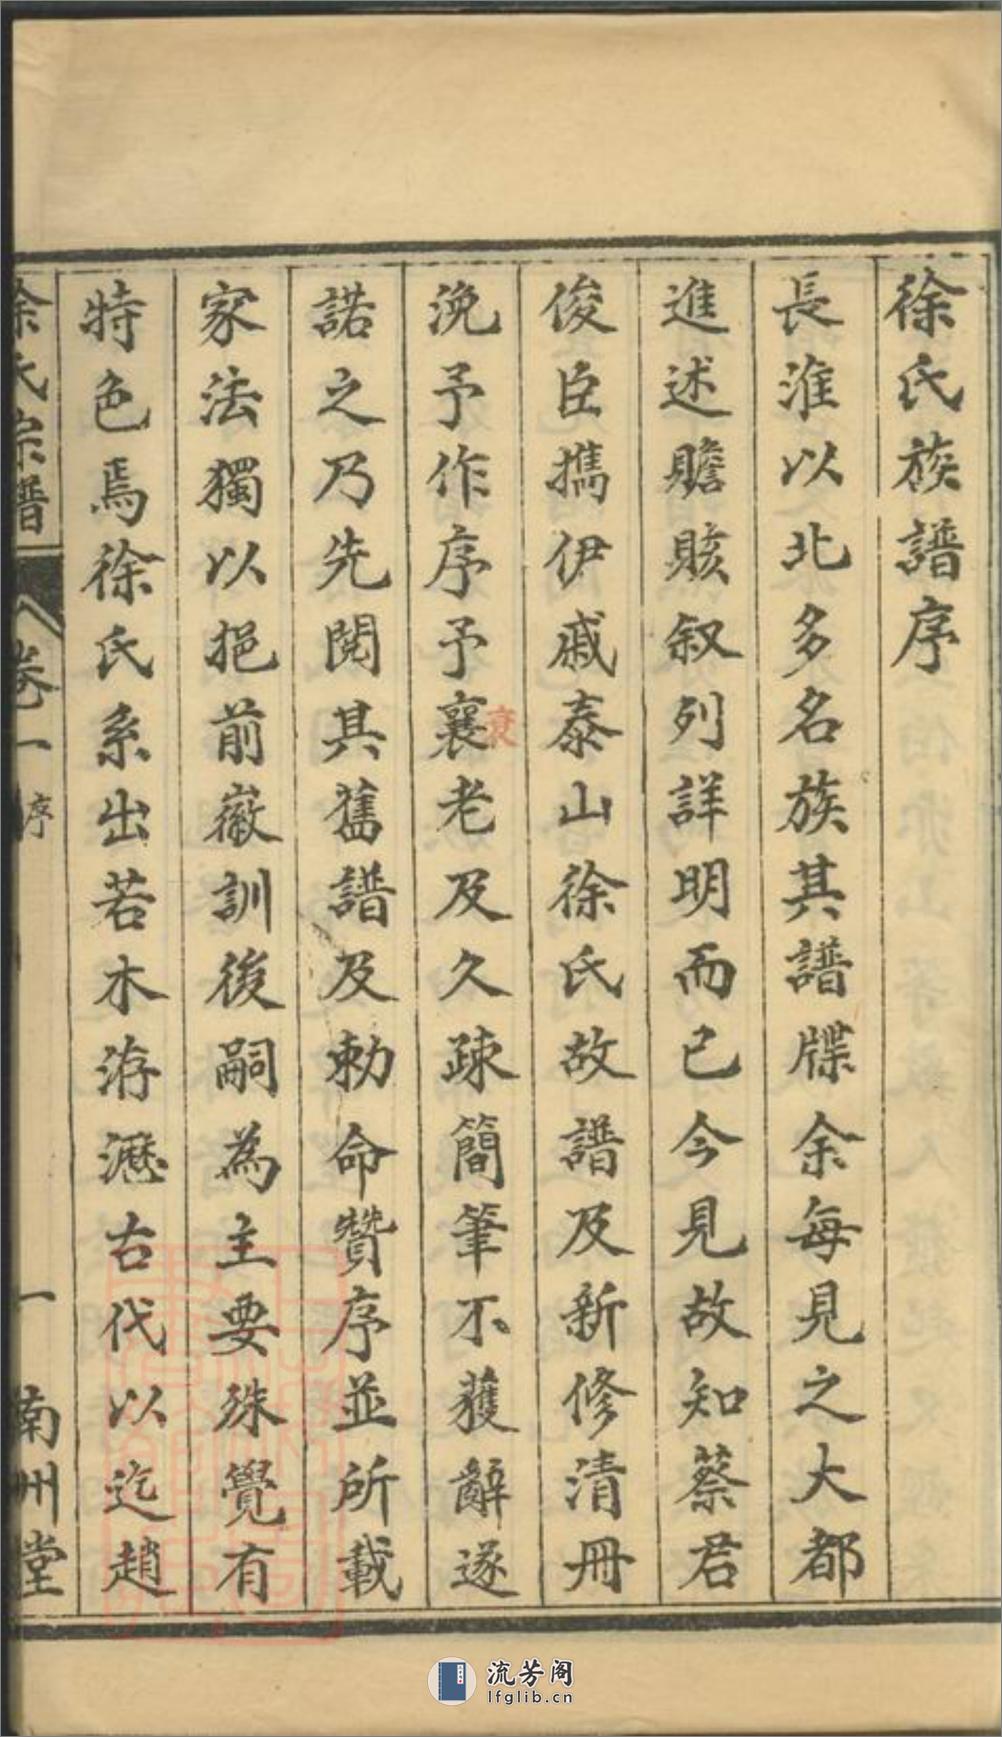 徐氏族譜序
長淮以北多名族其譜牒余每見之大都
進述贍賅叙列詳明而已今見故知蔡君
俊臣携伊戚泰山徐氏故譜及新修清冊
浼予作序予襄老及久疎簡筆不獲辭遂
衰
諾之乃先閱其舊譜及勅命贊序並所載
家法獨以挹前徽訓後嗣為主要殊覺有
特色焉徐氏系出若木洊瀝古代以迄趙
徐氏宗譜 卷一 序 一 南州堂
流芳阁
lfglib.cn